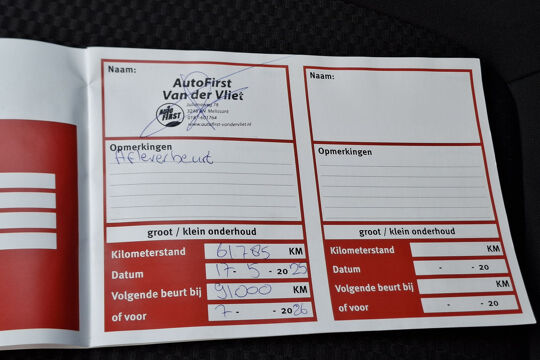 Naam:
AutoFirst
Van der Vliet
Julianaweg 78
Melissant
AUTO
FIRST
www.autofirst-vandervliet.nl
Opmerkingen
Afleverbeurt
groot / klein onderhoud
Kilometerstand 61785 KM
Datum 17 - 5 - 20 25
Volgende beurt bij 91000 KM
of voor 7 - - 20 26
Naam:
Opmerkingen
groot / klein onderhoud
Kilometerstand KM
Datum - - 20
Volgende beurt bij KM
of voor - - 20